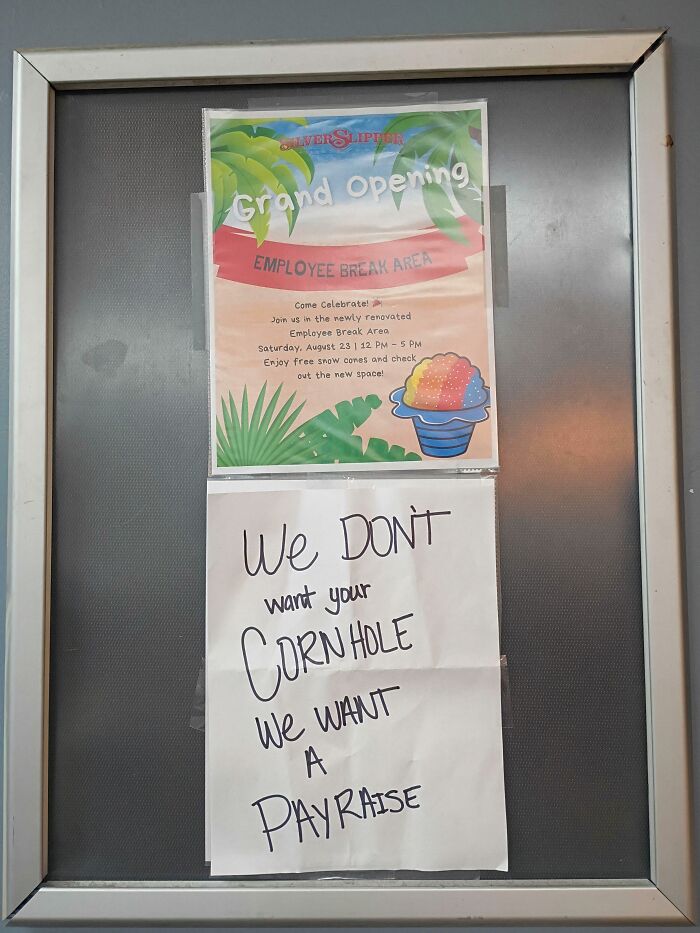 SILVER SLIPPER
Grand Opening
EMPLOYEE BREAK AREA
Come Celebrate!
Join us in the newly renovated
Employee Break Area
Saturday, August 23 | 12 PM – 5 PM
Enjoy free snow cones and check
out the new space!
We DON'T
want your
CORNHOLE
We WANT
A
PAYRAISE